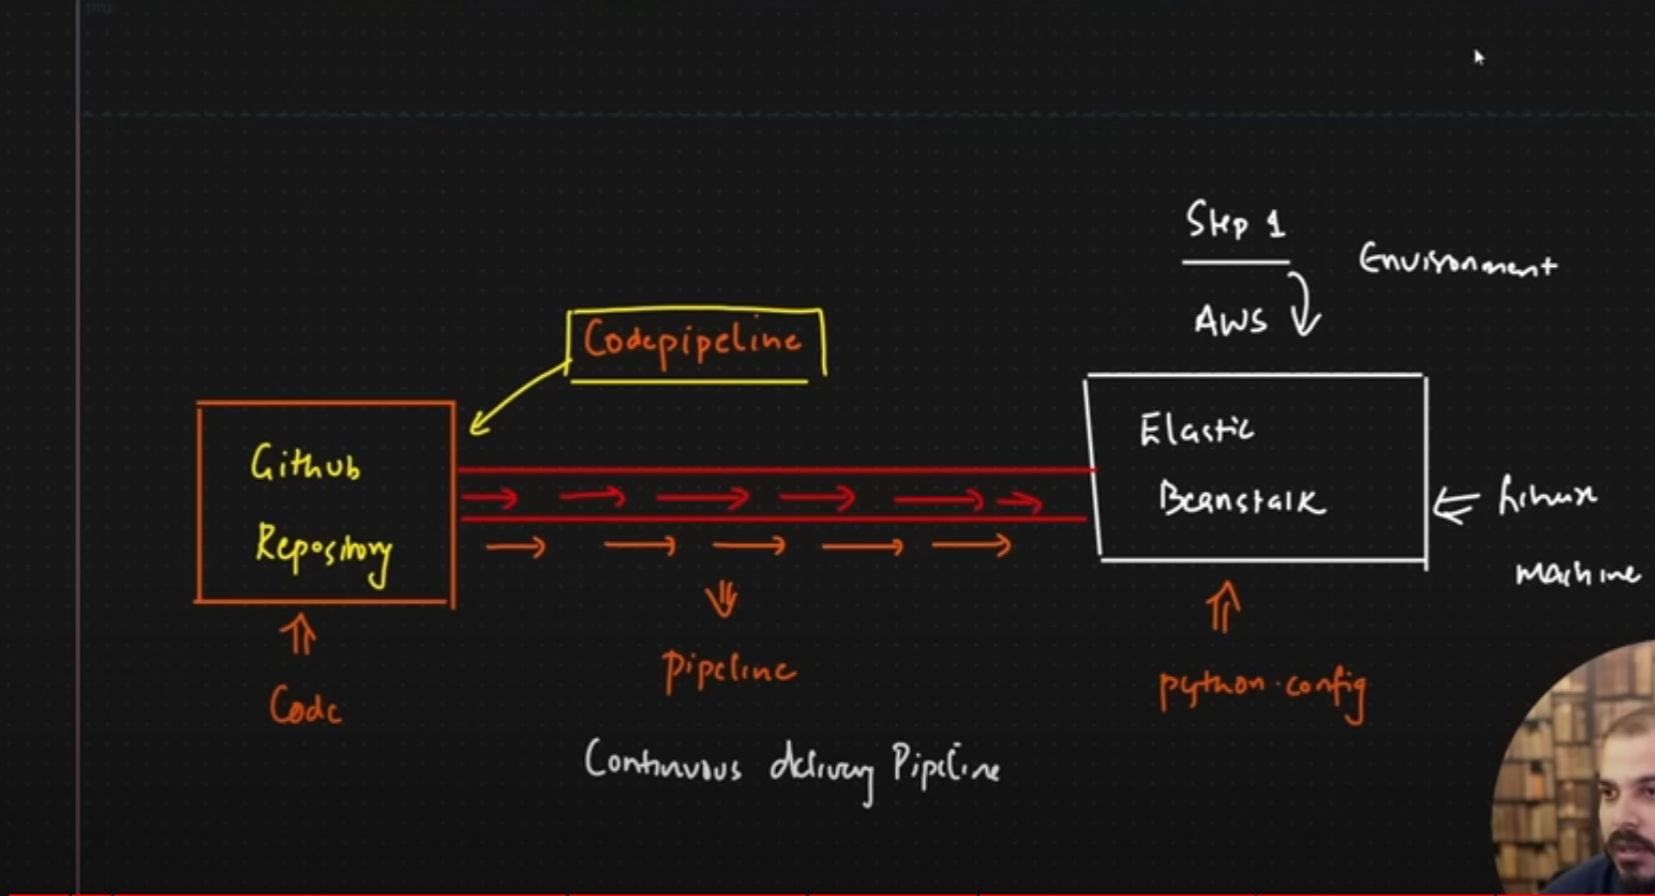 Step 1
Environment
AWS
Codepipeline
Github
Repository
Elastic
Beanstalk
Linux
machine
Code
pipeline
python.config
Continuous delivery Pipeline